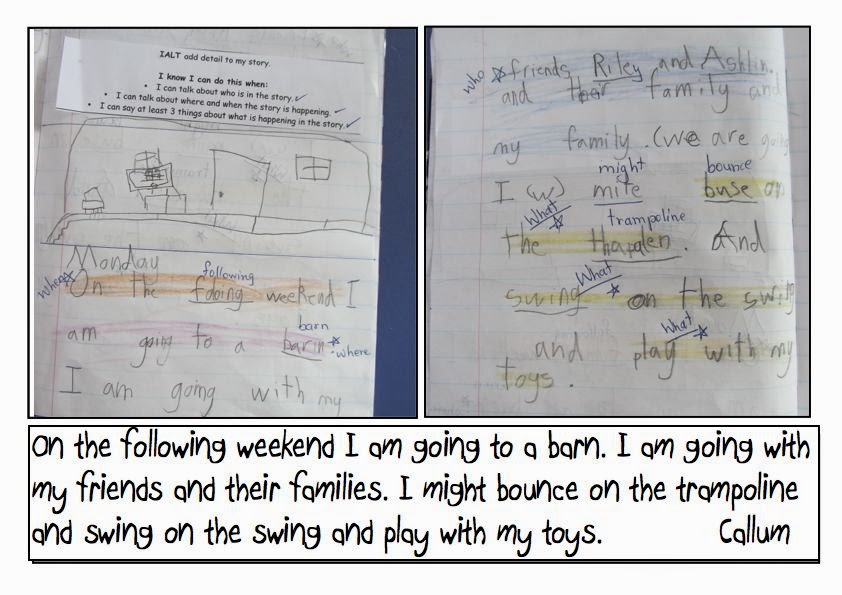 IALT add detail to my story.
I know I can do this when:
• I can talk about who is in the story. ✓
• I can talk about where and when the story is happening. ✓
• I can say at least 3 things about what is happening in the story. ✓
Monday
when following
On the fdoing weekend I
barn
am going to a barin where
I am going with my
who friends Riley and Ashlin.
and their family and
my family. (we are going
might bounce
I (w) mite buse on
What trampoline
the thapden. And
What
swing on the swing
What
and play with my
toys.
On the following weekend I am going to a barn. I am going with
my friends and their families. I might bounce on the trampoline
and swing on the swing and play with my toys. Callum